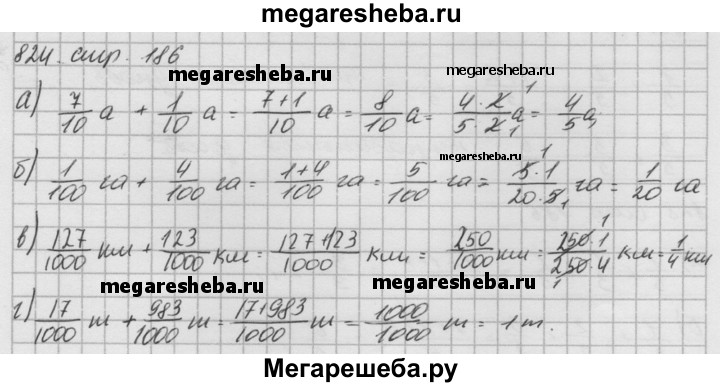 megaresheba.ru
824. стр. 186
megaresheba.ru megaresheba.ru
а) 7/10 а + 1/10 а = 7+1/10 а = 8/10 а = 4·2/5·2 а 1 1 = 4/5 а
megaresheba.ru
б) 1/100 га + 4/100 га = 1+4/100 га = 5/100 га = 5·1/20·5 га 1 1 = 1/20 га
megaresheba.ru
в) 127/1000 км + 123/1000 км = 127+123/1000 км = 250/1000 км = 250·1/250·4 км 1 1 = 1/4 км
megaresheba.ru megaresheba.ru
г) 17/1000 т + 983/1000 т = 17+983/1000 т = 1000/1000 т = 1 т.
Мегарешеба.ру